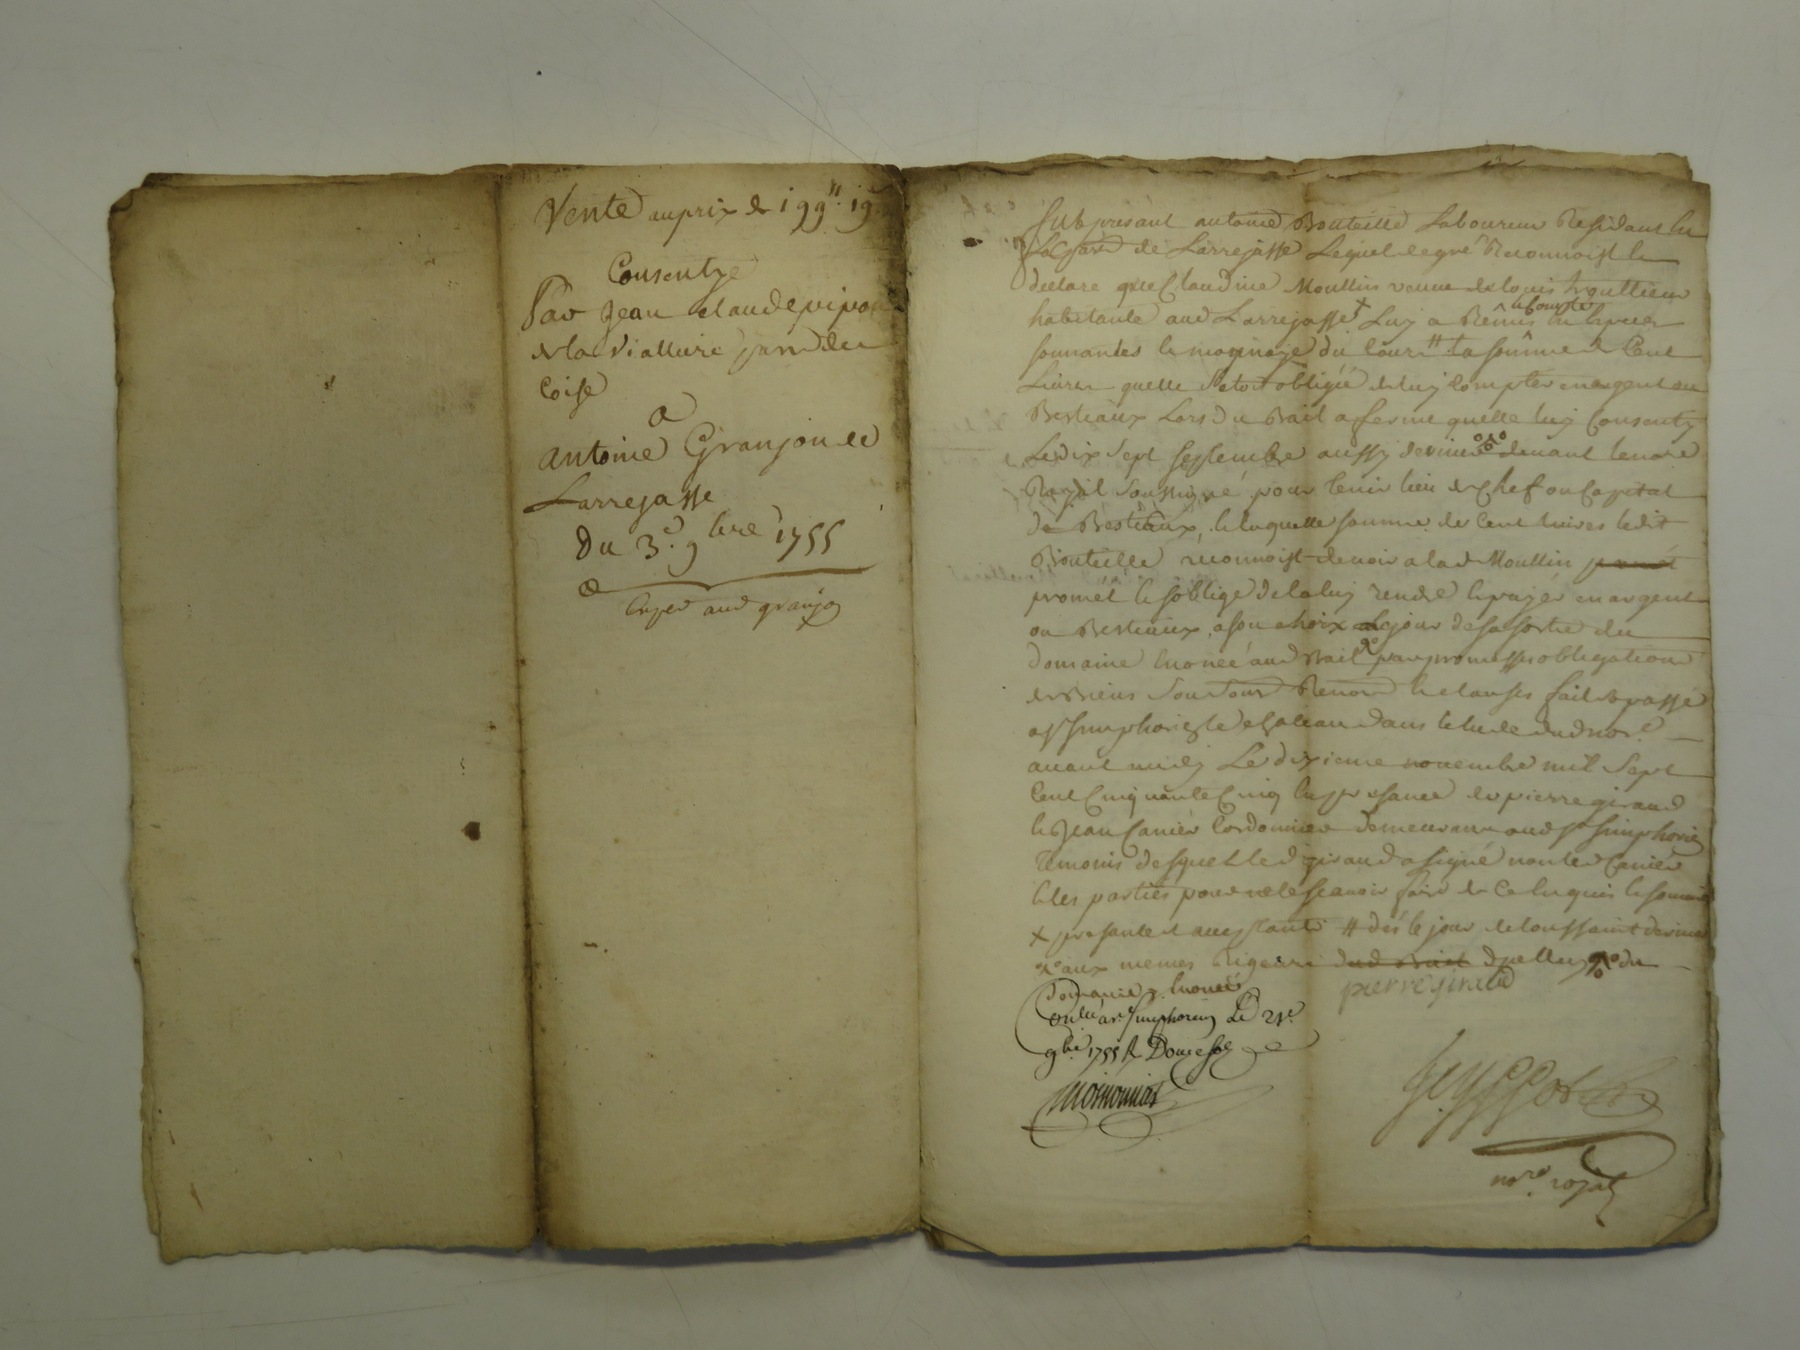 Vente au prix de 199ʰ 19ˢ
Consentye
Par Jean Claude pipon
de la Vialliere parr de
Coise
a
antoine Granjon de
Larrejasse
Du 3ᵉ 9bre 1755
Exped aud granjon
fut presant antoine Bouteille Laboureur Residant en
la parr de Larrejasse Lequel de gré Reconnoist et
declare que Claudine Moullin veuve de Louis
habitante aud Larrejasse + Luy a Remis en espèces
sonnantes et monnoye du cours # la somme de Cent
Livres quelle s'etoit obligée de luy compter en argent ou
Bestiaux Lors du Bail a ferme quelle luy Consenty
Le dix sept septembre aussy dernier devant le nore
Royal soussigné pour tenir lieu de Chef ou Capital
de Bestiaux, de laquelle somme de Cent Livres ledit
Bouteille reconnoist devoir a lad Moullin promet
promet et s'oblige de la luy rendre et payer en argent
ou Bestiaux, a son choix le jour de sa sortie du
domaine enoncé aud Bail par promesse obligation
de Biens Sous tour Renon et clauses fait et passé
a st simphorien le chateau dans l'etude dud nore
avant midy Le dixieme novembre mil Sept
Cent Cinquante Cinq en presance de pierre giraud
et Jean Canier Cordonnier demeurant aud st simphorien
temoins desquels led giraud a signé non led Canier
et les parties pour ne le scavoir faire de ce enquis et sommés
+ presante et acceptante # dès le jour de toussaint dernier
aux memes Rigeurs dud Bail du
domaine enoncé pierre giraud
Conllé a st Simphorien Le 21ᵉ
9bre 1755 R Douze sols
nore royal